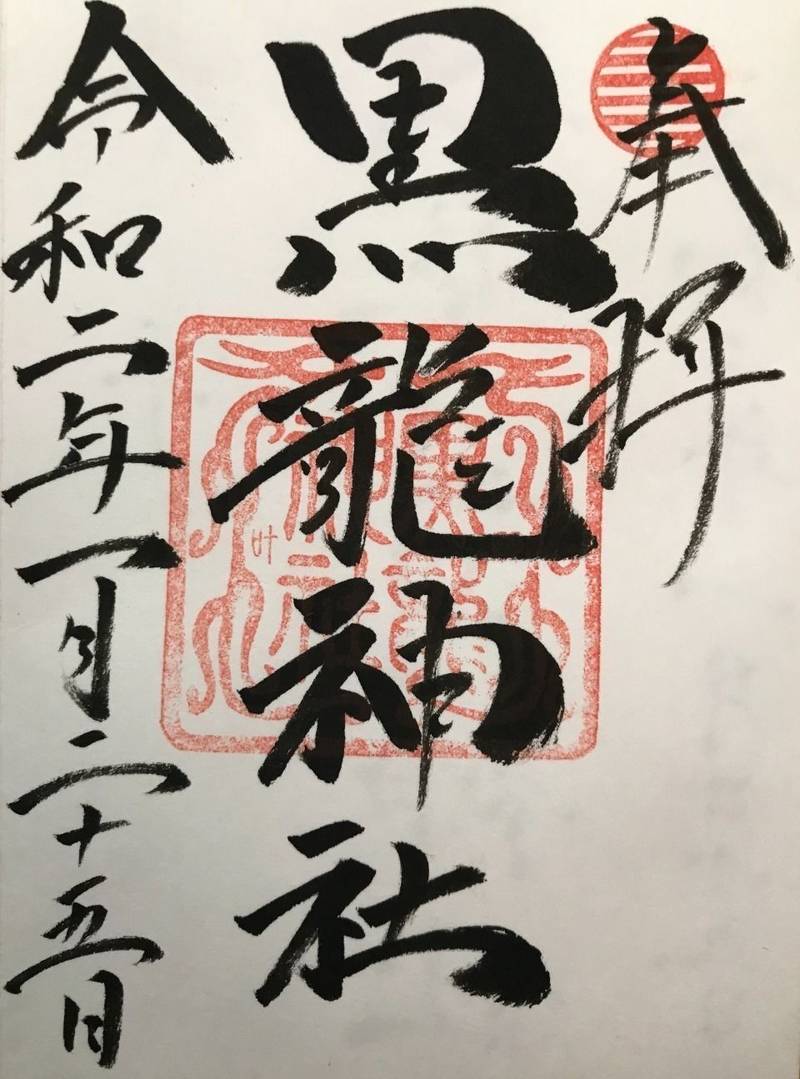 奉拝
黒龍神社
令和二年一月二十五日
叶